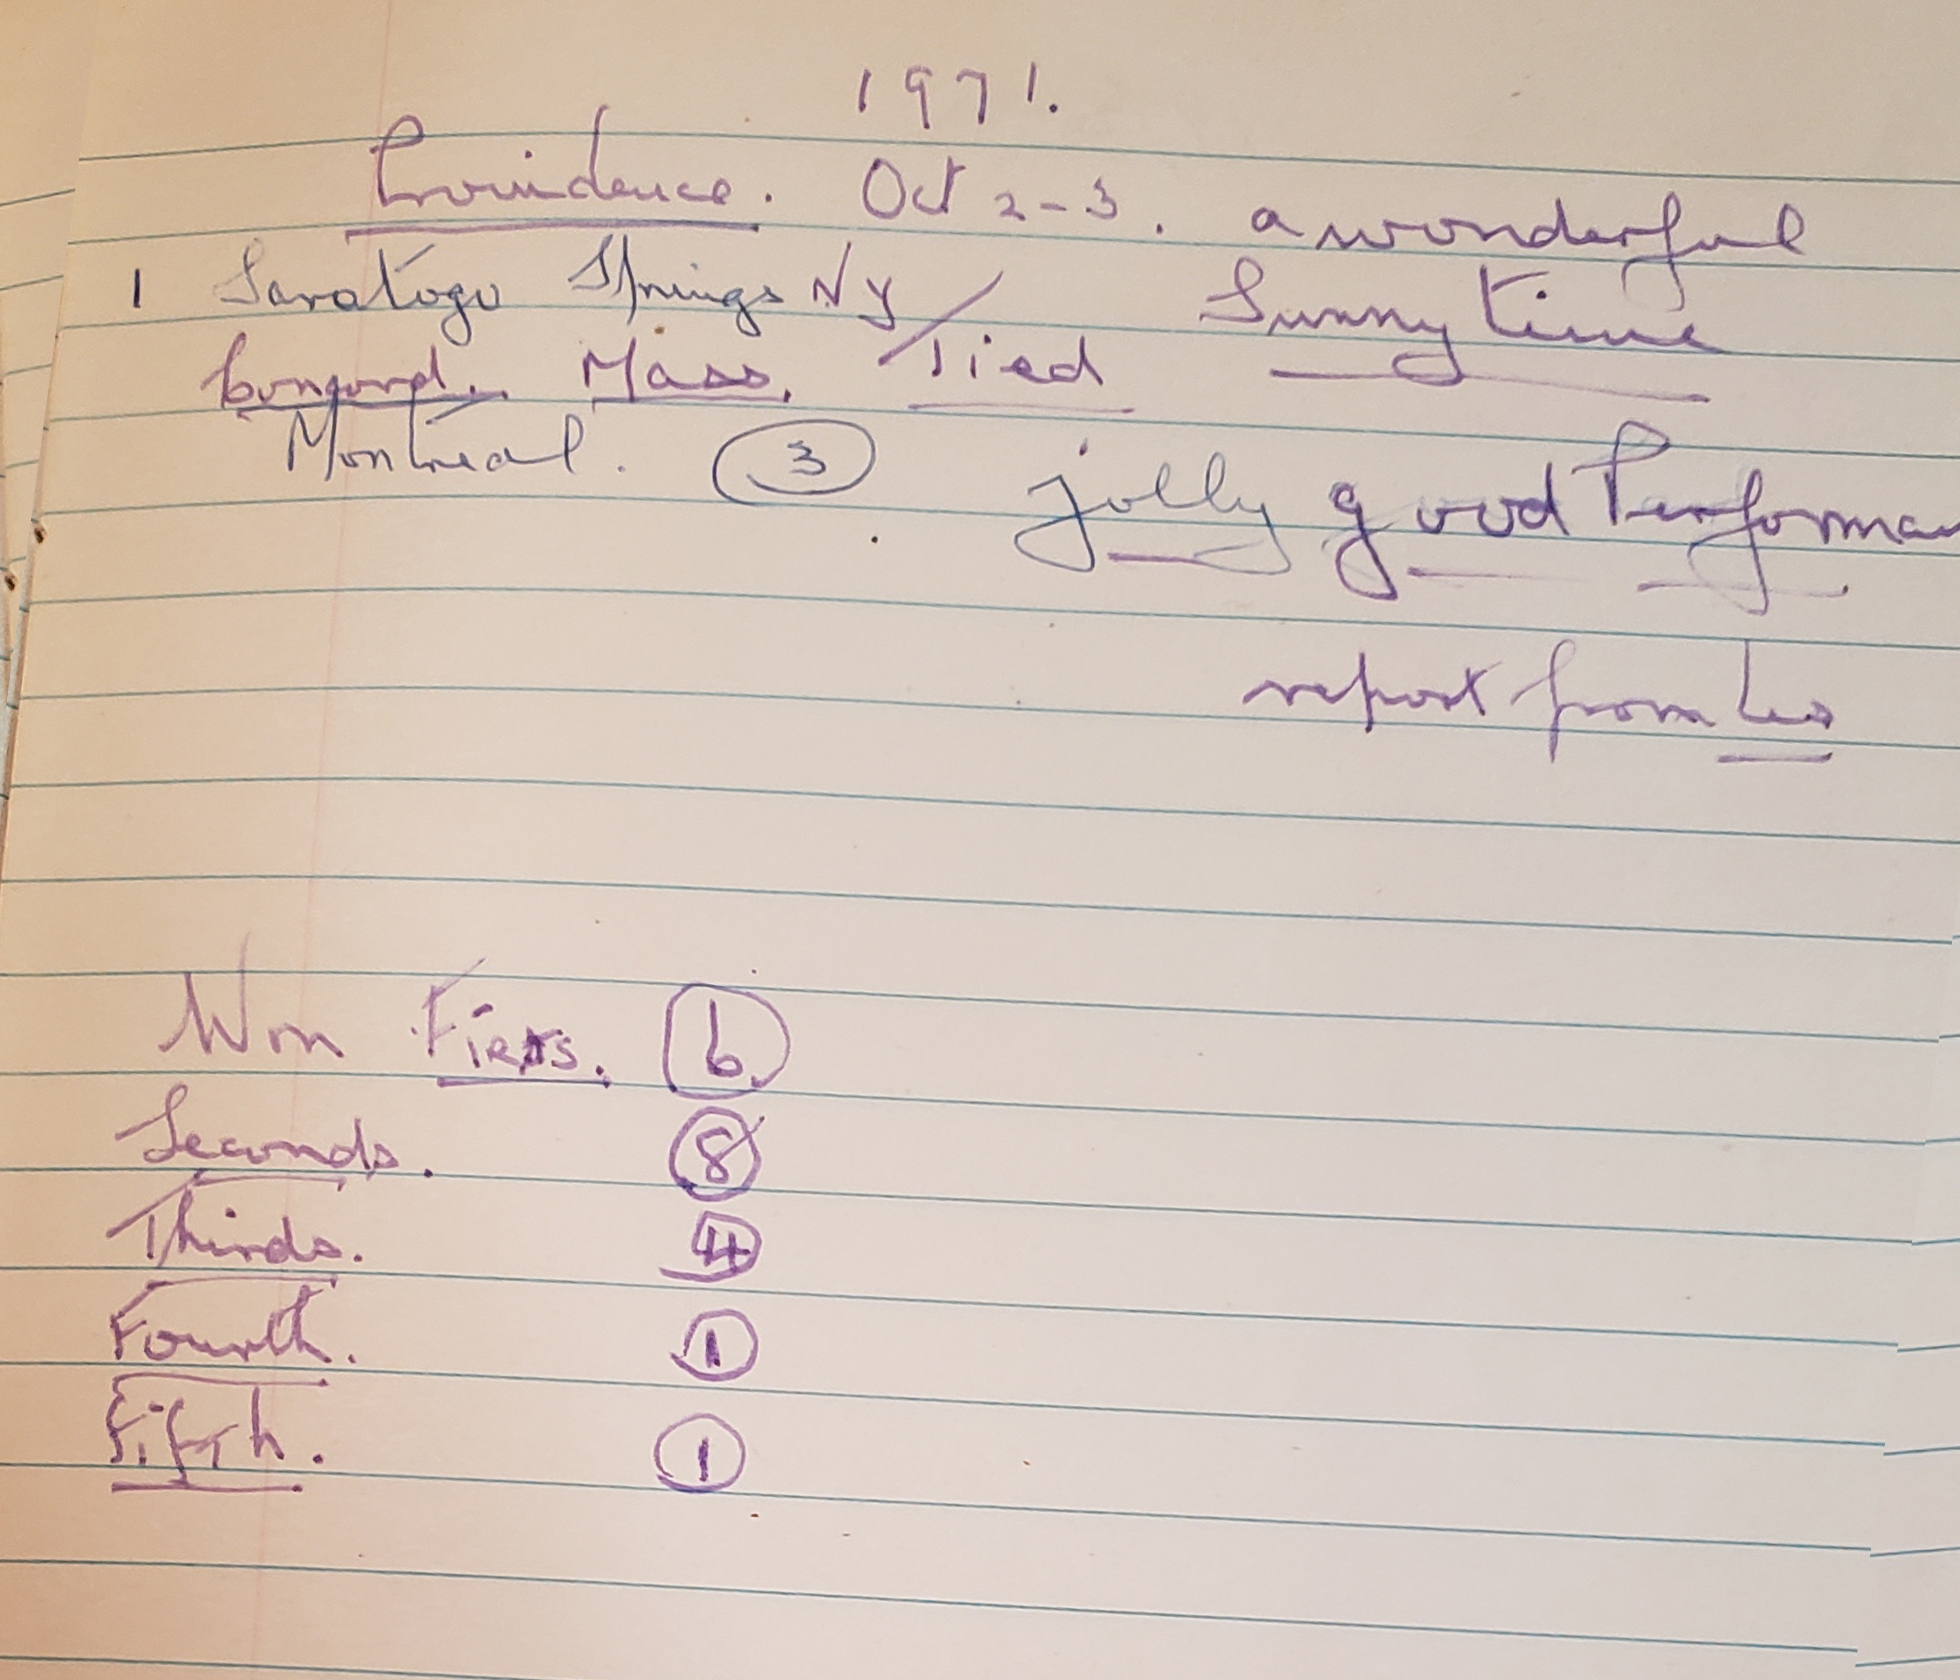 1971.
Providence. Oct 2-3. a wonderful
1 Saratoga Springs NY / Sunny time
Concord. Mass. Tied
Montreal. 3 jolly good Performan
report from Les
Won Firsts. 6
Seconds. 8
Thirds. 4
Fourth. 1
Fifth. 1